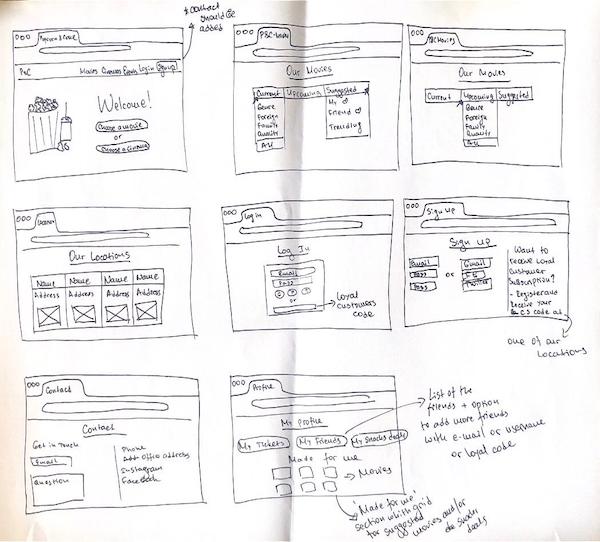 & contact
should be
added
Popcorn & Coke
P&C
Movies Cinemas Login Signup
Welcome!
Choose a Movie
or
Choose a Cinema
P&C-
Our Movies
Current Upcoming Suggested
Genre
Foreign
Family
Quality
All
My
Friend
Trending
P&C Movies
Our Movies
Current Upcoming Suggested
Genre
Foreign
Family
Quality
All
Our Locations
Name Name Name Name
Address Address Address Address
Log in
Log In
Email
Pass
or
Loyal
customers
code
Sign up
Sign up
Email
Pass
Pass
or
Gmail
FB
Twitter
Want to
receive Loyal
Customer
Subscription?
- Register and
Receive your
P&CS code at
one of our
Locations
Contact
Contact
Get in Touch
Email
Question
Phone
Office address
Instagram
Facebook
Profile
My Profile
My Tickets My Friends My Snacks deals
Made for me
Movies
List of the
friends + option
to add more friends
with e-mail or username
or loyal code
'Made for me'
section with grid
for suggested
movies and/or
snacks
deals